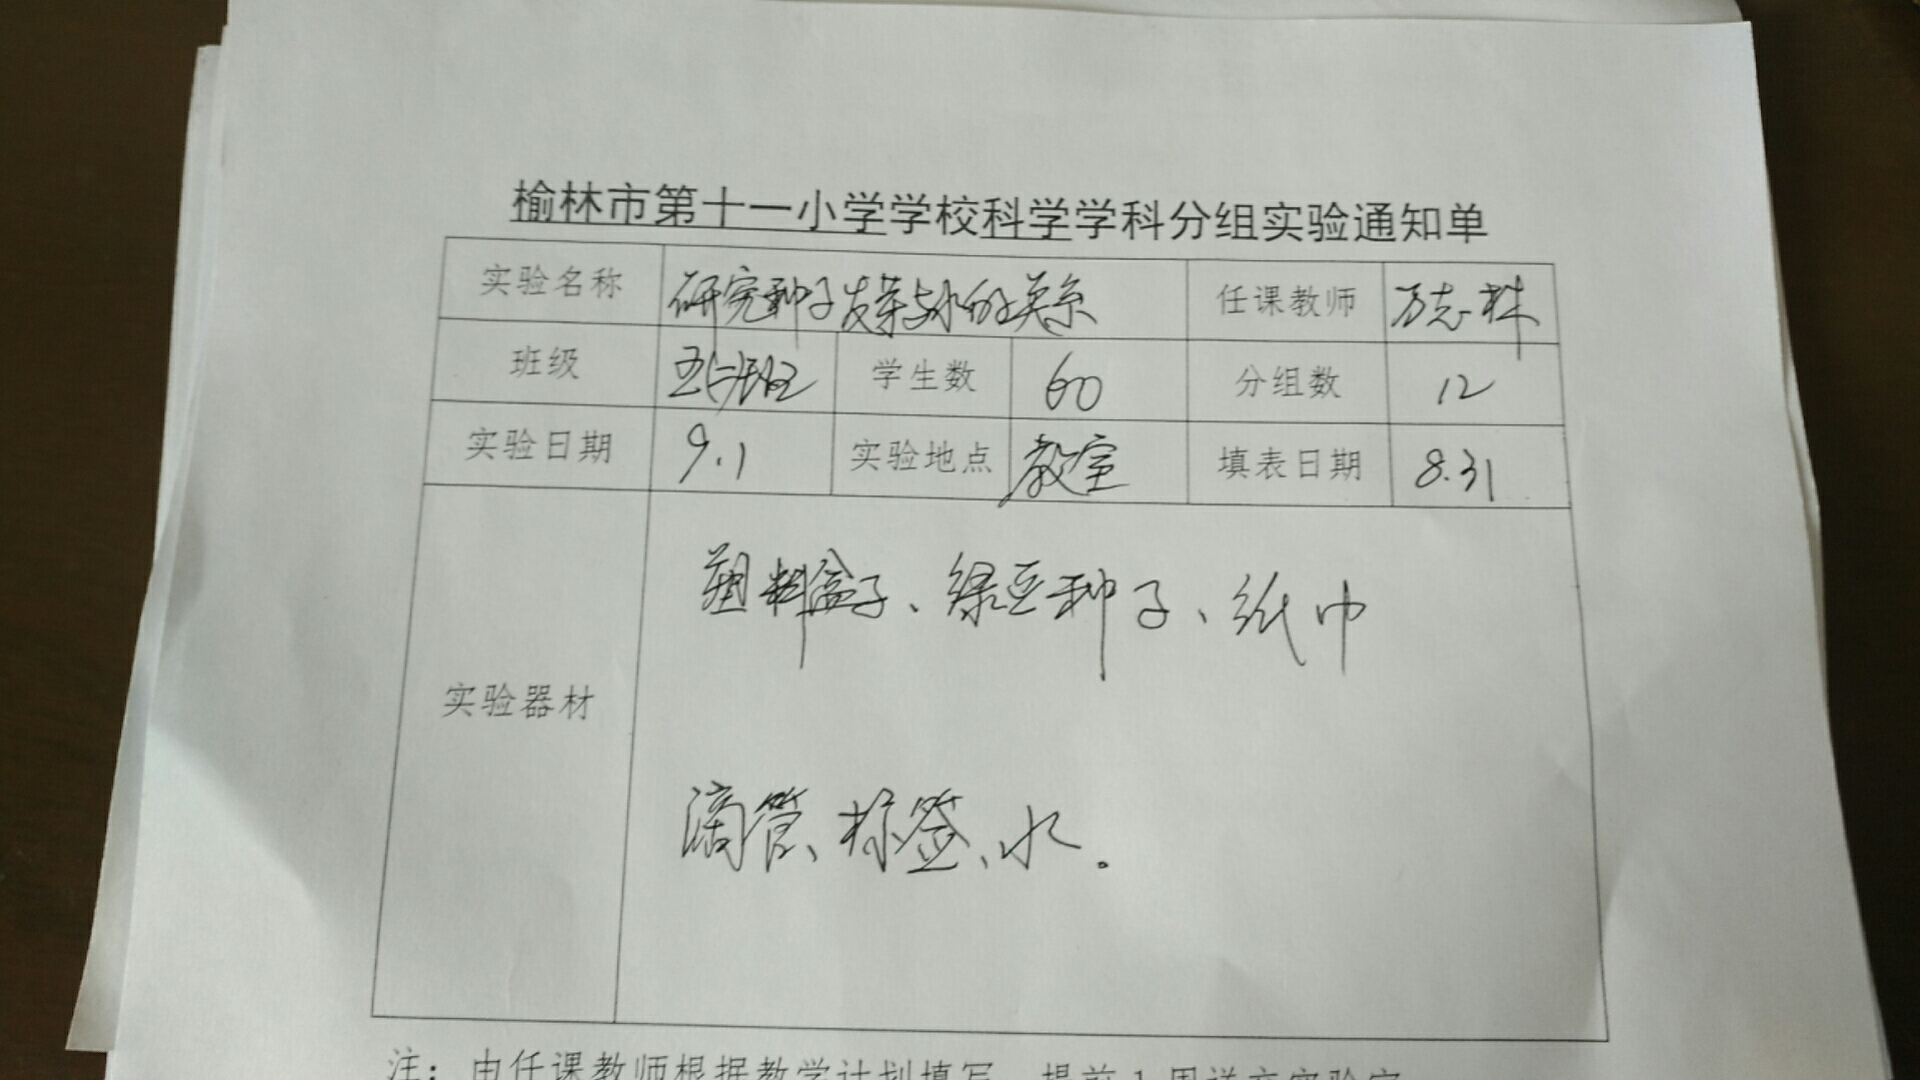 榆林市第十一小学学校科学学科分组实验通知单
实验名称 研究种子发芽与水的关系 任课教师 万志林
班级 五(二)班 学生数 60 分组数 12
实验日期 9.1 实验地点 教室 填表日期 8.31
塑料盒子、绿豆种子、纸巾
实验器材
滴管、标签、水。
注:由任课教师根据教学计划填写,提前1周送交实验室